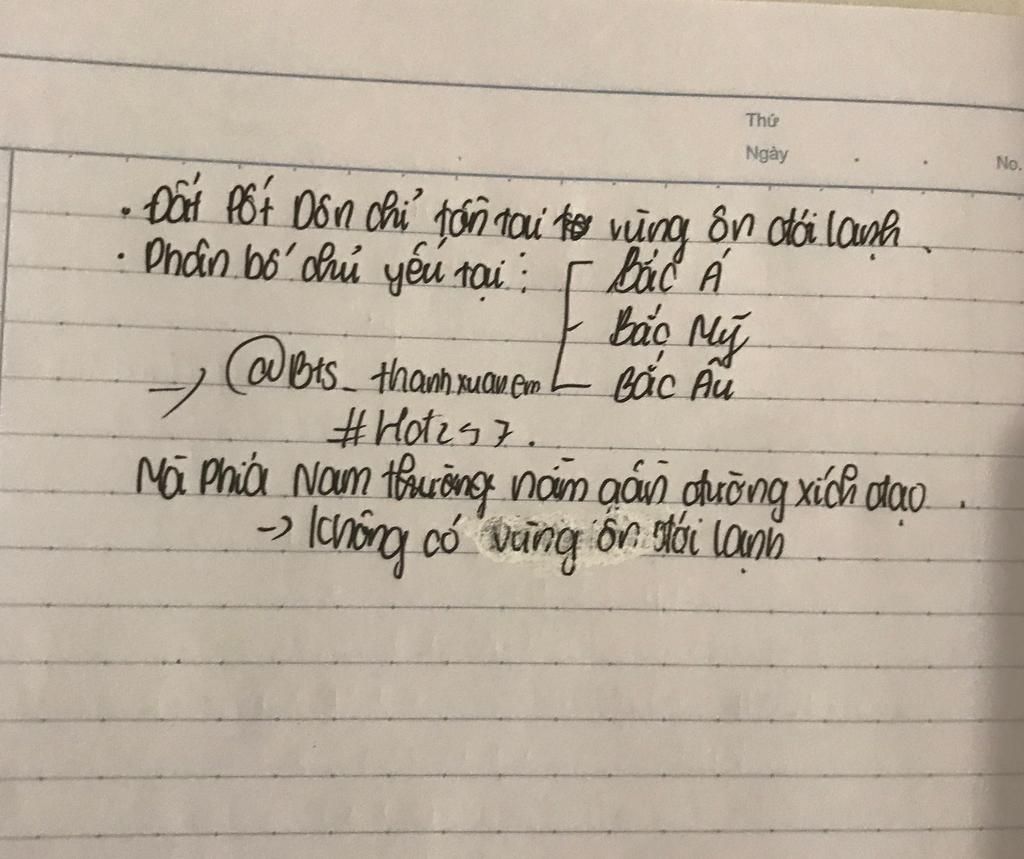 Thứ
Ngày . . No.
. Đất Pốt Dôn chỉ tồn tại ở vùng ôn đới lạnh.
. Phân bố chủ yếu tại : Bắc Á
Bắc Mỹ
→ @Bts_thanhxuan.em Bắc Âu
#Hot257.
Mà phía Nam thường nằm gần đường xích đạo.
→ không có vùng ôn đới lạnh.